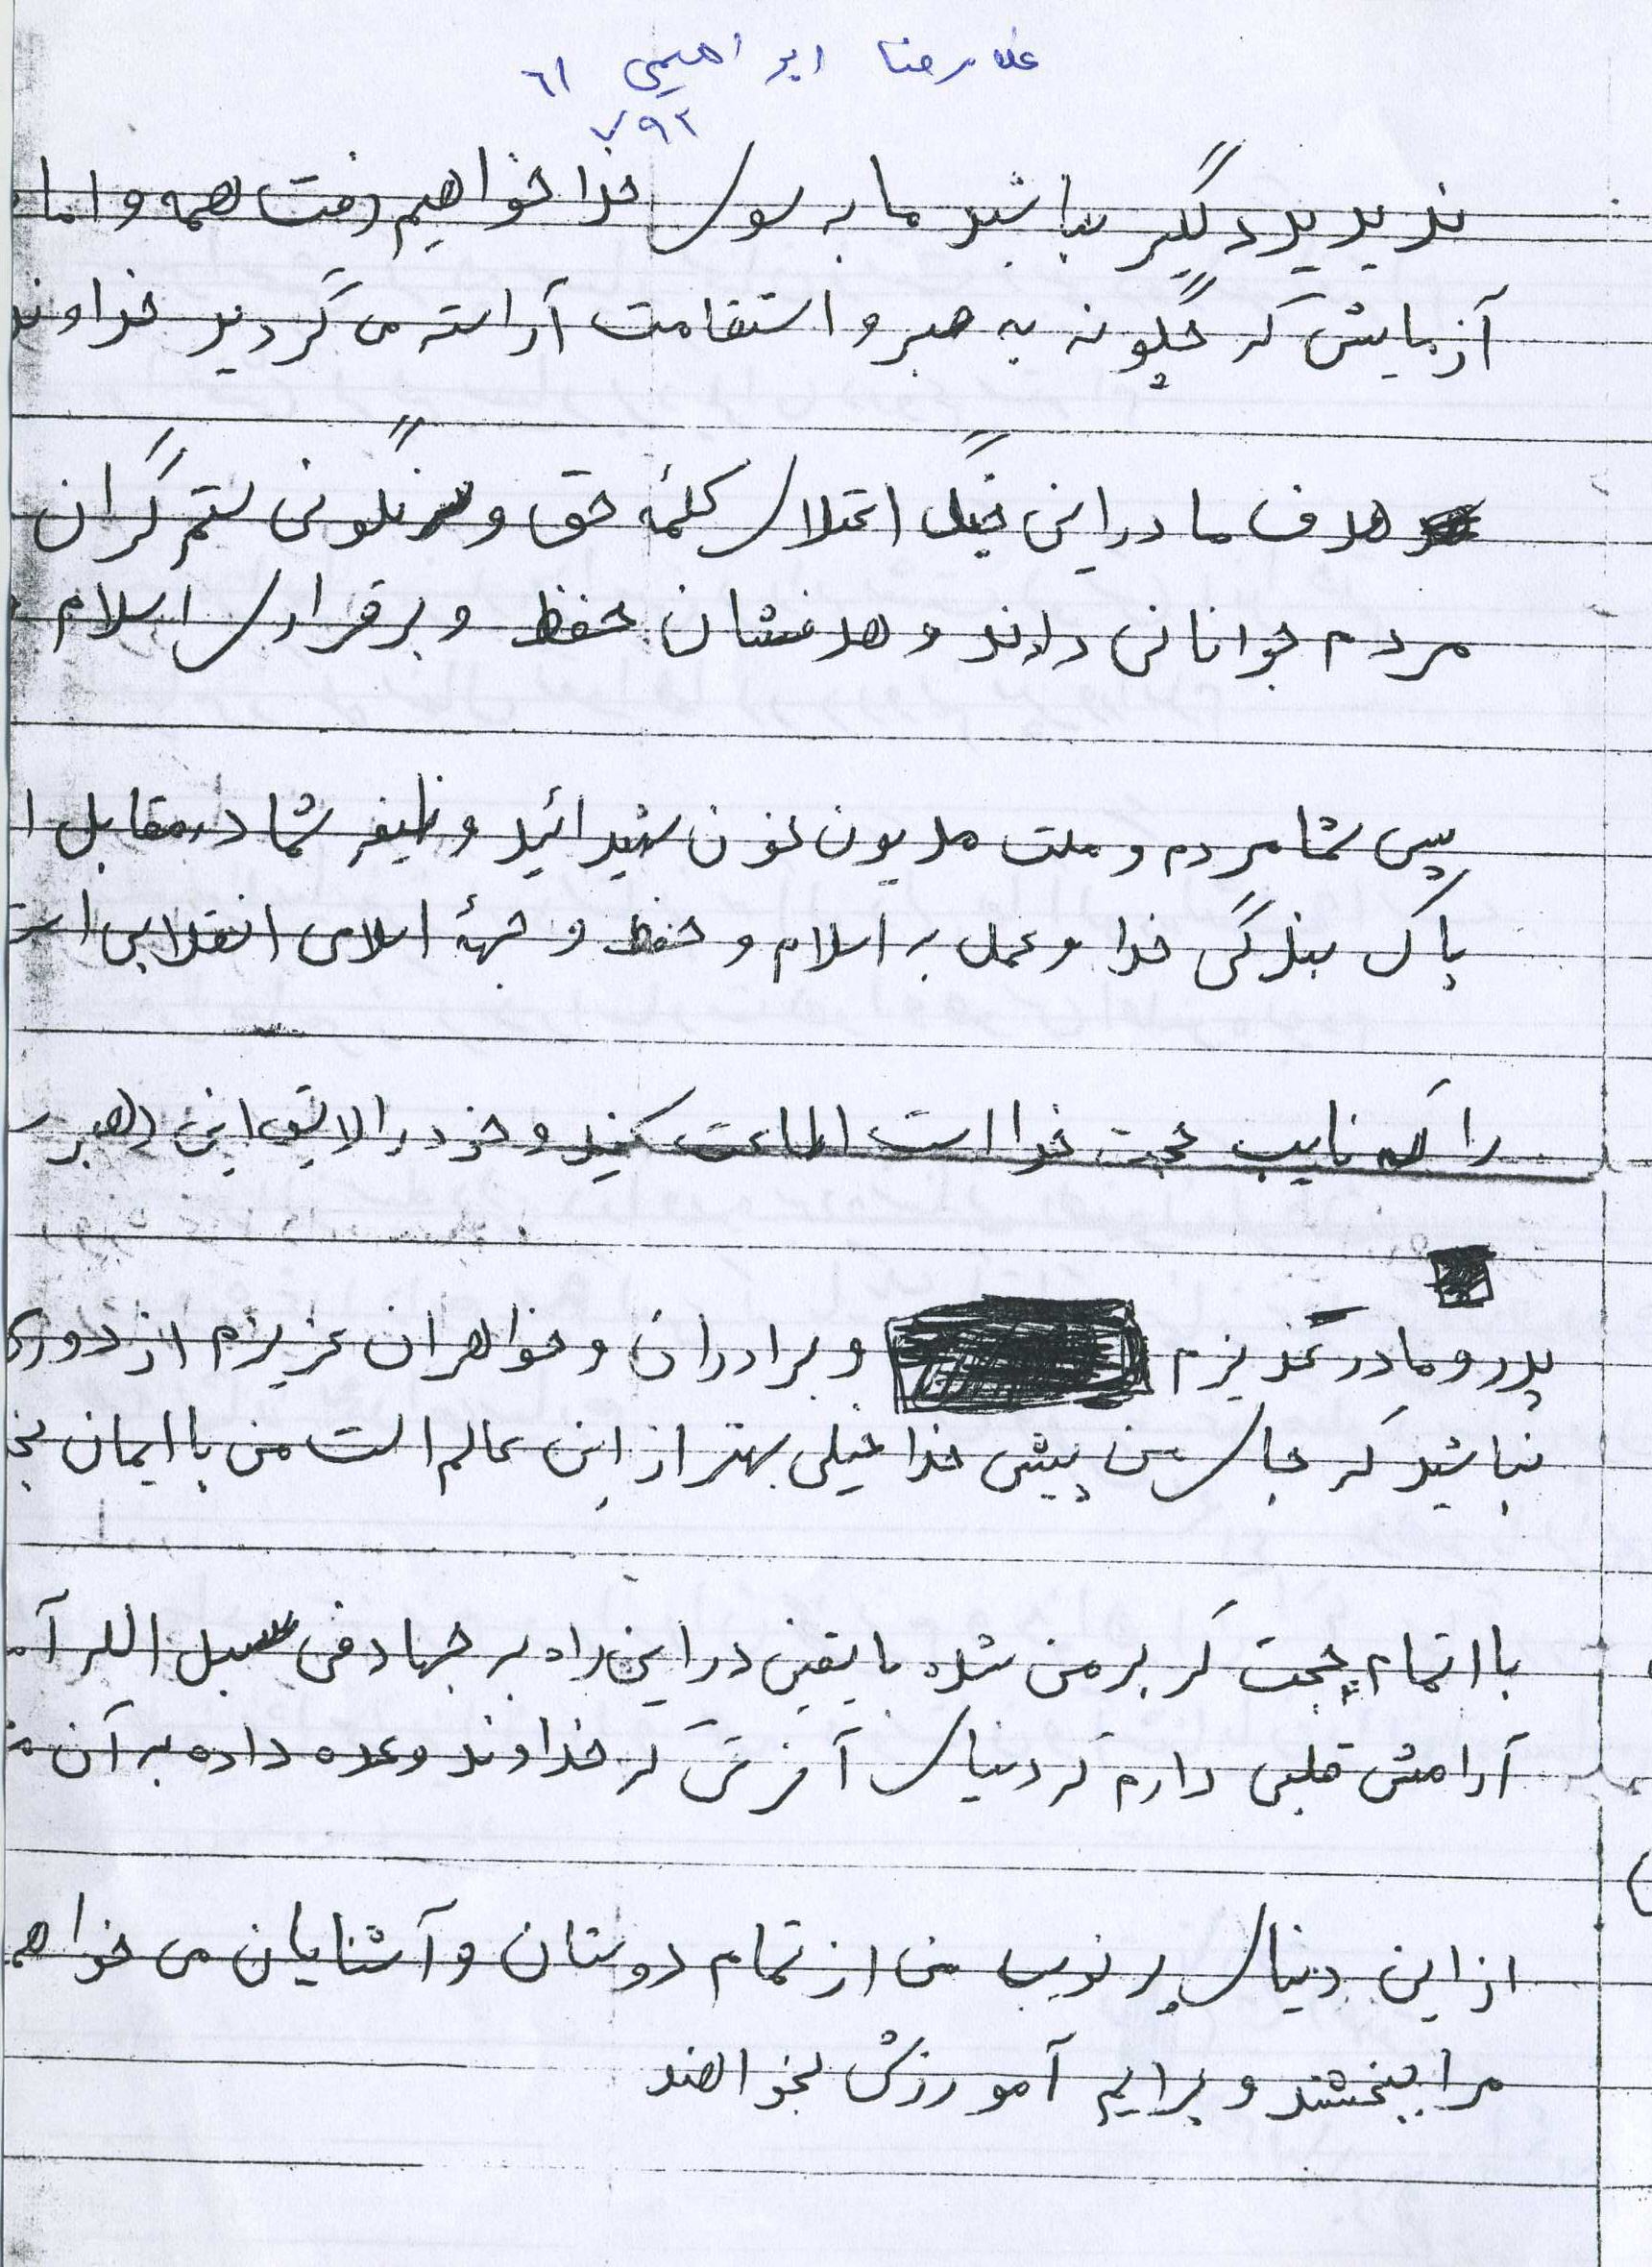 غلامرضا ابراهیمی ٦١
٧٩٢
ندیدید دیگر بباشید ما به سوی خدا خواهیم رفت همه و اما
آزمایش که چگونه به صبر و استقامت آراسته می گردید خداوند
هدف ما در این جنگ اعتلای کلمهٔ حق و سرنگونی ستم گران
مردم جوانانی دادند و هدفشان حفظ و برقراری اسلام
پس شما مردم و ملت مدیون خون شهدائید وظیفه شما در مقابل ا
پاک بندگی خدا و عمل به اسلام و حفظ وجههٔ اسلامی انقلابی است
را که نایب حجت خدا است اطاعت کنید و خود را لایق این رهبر
پدر و مادر عزیزم و برادران و خواهران عزیزم از دوری
نباشید که جای من پیش خدا خیلی بهتر از این عالم است من با ایمان بخ
با اتمام حجت که بر من شده با یقین در این راه به جهاد فی سبیل الله آمـ
آرامش قلبی دارم که دنیای آخرتی که خداوند وعده داده به آن
از این دنیای پر فریب من از تمام دوستان و آشنایان می خواهم
مرا ببخشند و برایم آمورزش بخواهند